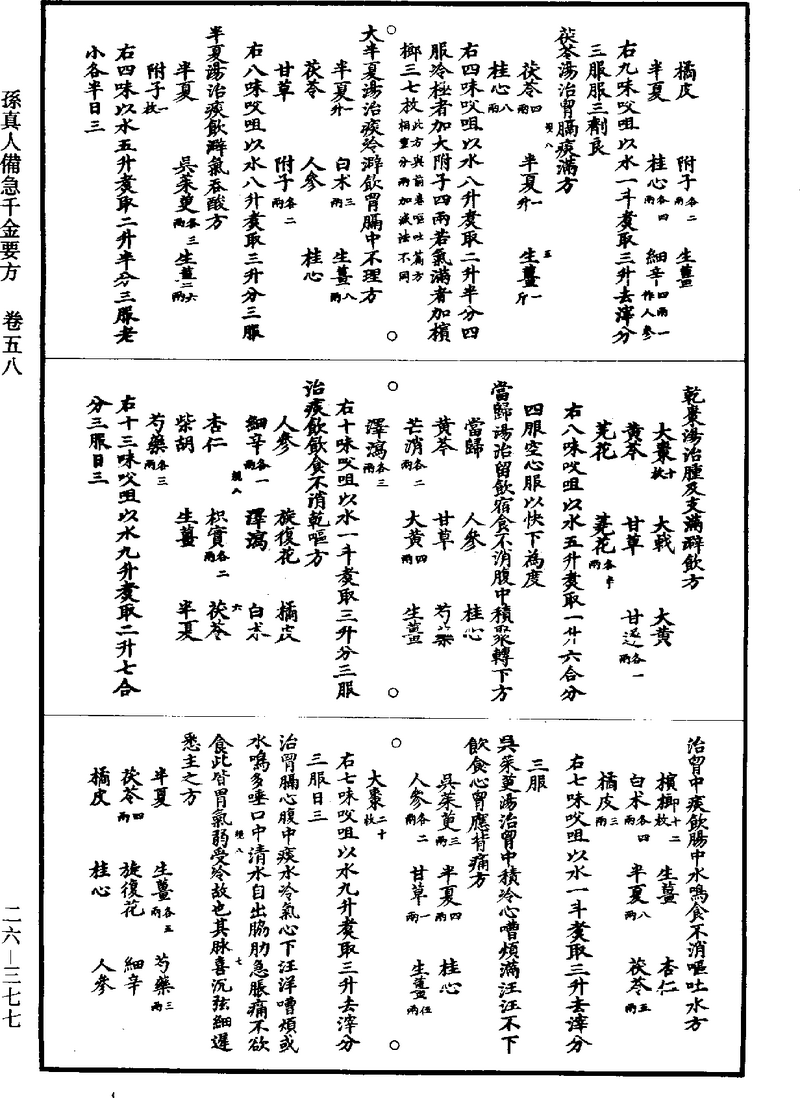 孫真人備急千金要方　卷五八
二六—三七七
橘皮　附子各二兩　生薑
半夏　桂心各四兩　細辛四兩一作人參
右九味㕮咀以水一斗煑取三升去滓分
三服服三劑良
茯苓湯治胷膈痰滿方
茯苓四兩　半夏一升　生薑一斤
桂心八兩
右四味㕮咀以水八升煑取二升半分四
服冷極者加大附子四兩若氣滿者加檳
榔三七枚此方與前卷嘔吐篇方相重分兩加減法不同
大半夏湯治痰冷澼飲胷膈中不理方
半夏一升　白朮三兩　生薑八兩
茯苓　人參　桂心
甘草　附子各二兩
右八味㕮咀以水八升煑取三升分三服
半夏湯治痰飲澼氣吞酸方
半夏　吳茱萸各三兩　生薑六兩
附子一枚
右四味以水五升煑取二升半分三服老
小各半日三
乾棗湯治腫及支滿澼飲方
大棗十枚　大戟　大黃
黃芩　甘草　甘遂各一兩
芫花　蕘花各半兩
右八味㕮咀以水五升煑取一升六合分
四服空心服以快下為度
當歸湯治留飲宿食不消腹中積聚轉下方
當歸　人參　桂心
黃芩　甘草　芍藥
芒消各二兩　大黃四兩　生薑
澤瀉各三兩
右十味㕮咀以水一斗煑取三升分三服
治痰飲飲食不消乾嘔方
人參　旋復花　橘皮
細辛各一兩　澤瀉　白朮
杏仁　枳實各二兩　茯苓
柴胡　生薑　半夏
芍藥各三兩
右十三味㕮咀以水九升煑取二升七合
分三服日三
治胷中痰飲腸中水鳴食不消嘔吐水方
檳榔十二枚　生薑　杏仁
白朮各四兩　半夏八兩　茯苓五兩
橘皮三兩
右七味㕮咀以水一斗煑取三升去滓分
三服
吳茱萸湯治胷中積冷心嘈煩滿汪汪不下
飲食心胷應背痛方
吳茱萸三兩　半夏四兩　桂心
人參各二兩　甘草一兩　生薑伍兩
大棗二十枚
右七味㕮咀以水九升煑取三升去滓分
三服日三
治胷膈心腹中痰水冷氣心下汪洋嘈煩或
水鳴多唾口中清水自出脇肋急脹痛不欲
食此皆胃氣弱受冷故也其脉喜沉弦細遲
悉主之方
半夏　生薑各五兩　芍藥三兩
茯苓四兩　旋復花　細辛
橘皮　桂心　人參